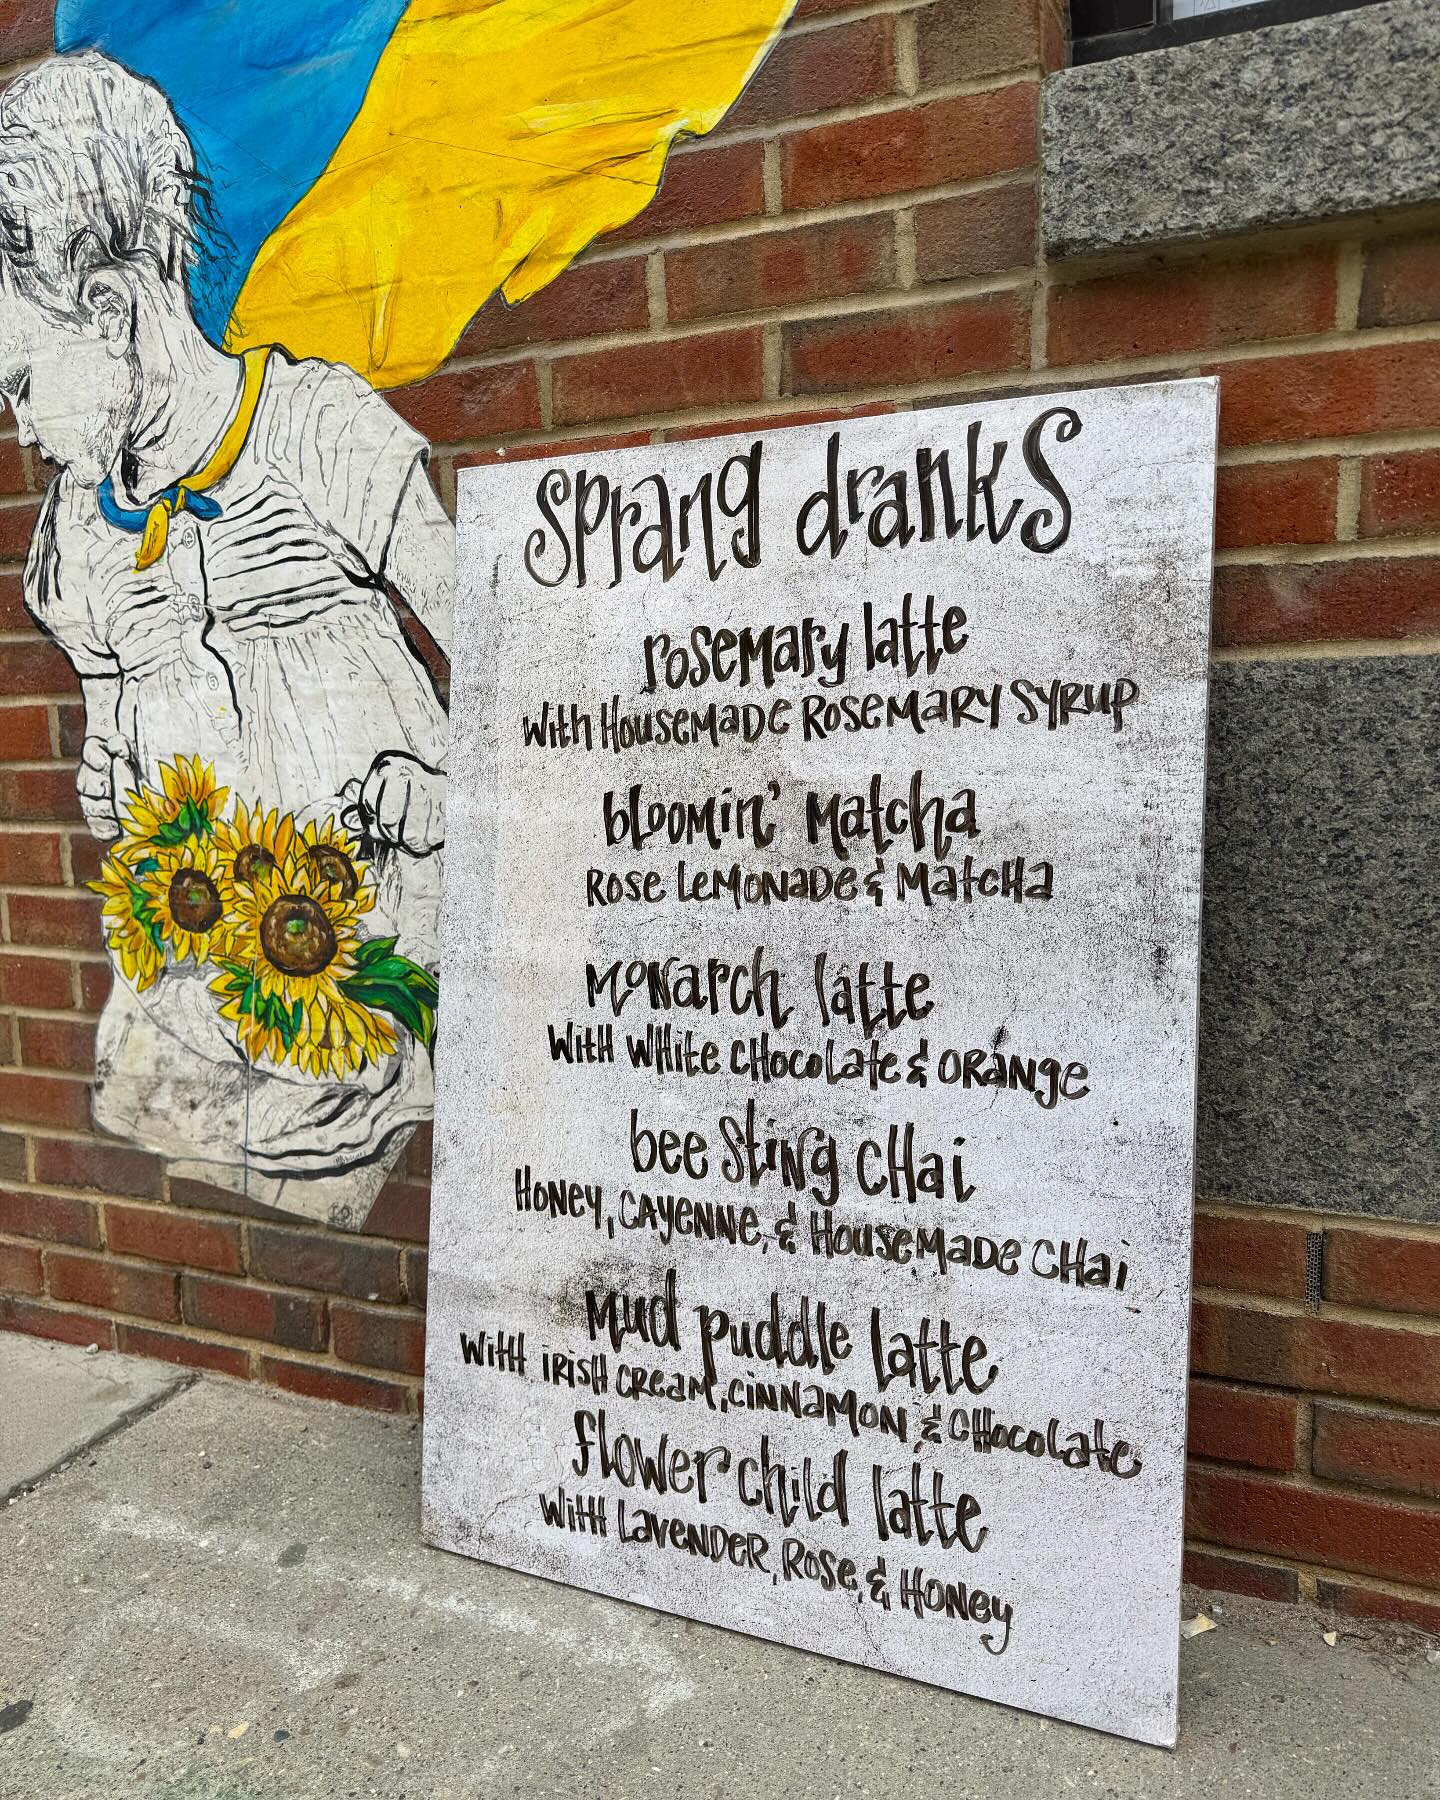 Sprang dranks
rosemary latte
With Housemade Rosemary Syrup
bloomin' Matcha
Rose Lemonade & Matcha
Monarch latte
With White Chocolate & Orange
bee Sting Chai
Honey, Cayenne, & Housemade Chai
Mud puddle latte
With Irish Cream, Cinnamon, & Chocolate
flower child latte
With Lavender, Rose, & Honey